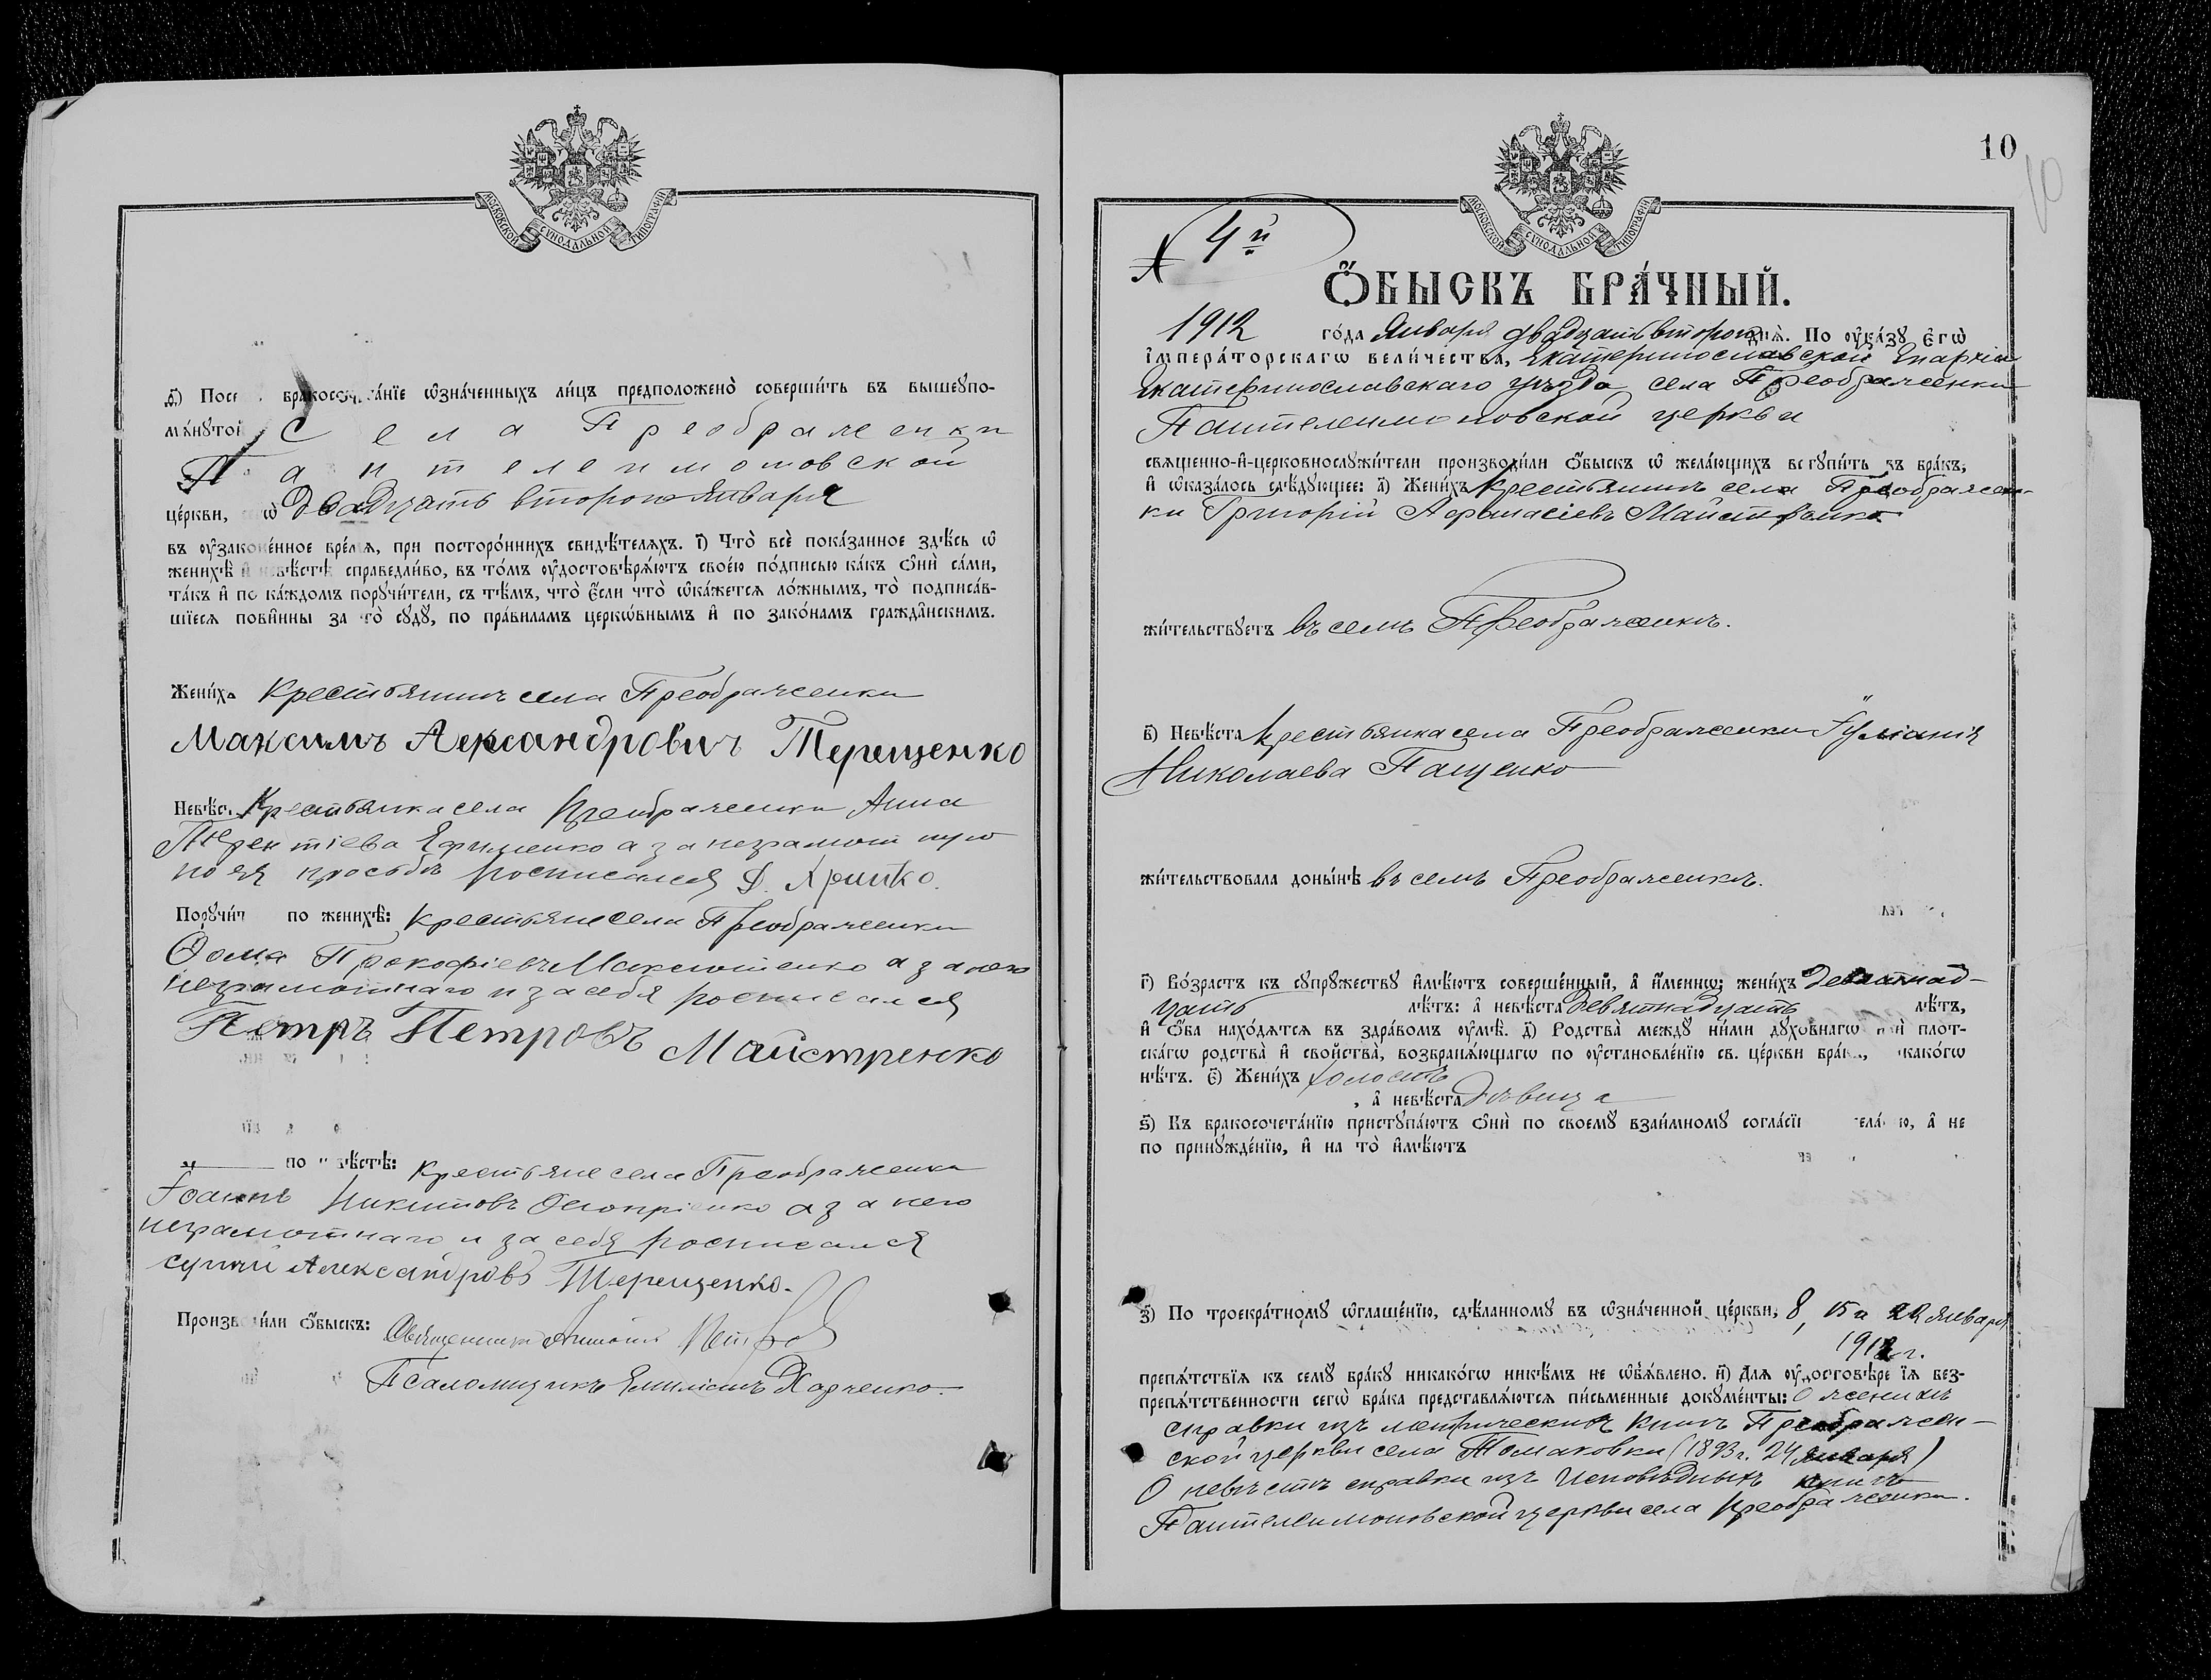 МОСКОВСКОЙ СУНОДАЛЬНОЙ ТИПОГРАФІИ
бракосочетáнїе ѡзнáченныхъ ли́цъ предположенò соверши́ть въ вышеꙋпо-
мѧ́нꙋтой Села Преображенки
Пантелеимоновской
цéркви, Двадцать второго Января
въ ᲂу҆закóненное врéмѧ, при посторóннихъ свидѣ́телѧхъ. і҃) Чтò всѐ покáзанное здѣ́сь ѡ҆
женихѣ̀ и҆ невѣ́стѣ справедли́во, въ тóмъ ᲂу҆достовѣрѧ́ютъ своéю пóдписью кáкъ ѻ҆нѝ сáми,
тáкъ и҆ по кáждомъ порꙋчи́тели, съ тѣ́мъ, что̀ є҆́сли чтò ѡ҆кáжетсѧ лóжнымъ, тò подписáв-
шїесѧ пови́нны за тò сꙋдꙋ̀, по прáвиламъ церкѡ́внымъ и҆ по закóнамъ граждáнскимъ.
Жени́хъ Крестьянинъ села Преображенки
Максимъ Александровичъ Терещенко
Невѣ́с. Крестьянка села Преображенки Анна
Терентіева Ефименко а за неграмотную
по ея просьбѣ росписался Д. Хрипко.
Порꙋчи́т по женихѣ̀: Крестьяне села Преображенки
Ѳома Прокофіевъ Максютенко а за него
неграмотнаго и за себя росписался
Петръ Петровъ Майстренко
по невѣ́стѣ: Крестьяне села Преображенки
Іоаннъ Никитовъ Оноприенко а за него
неграмотнаго и за себя росписался
Александровъ Терещенко.
Производи́ли ѻ҆́быскъ: Священникъ Антоній
Псаломщикъ Емиліанъ Харченко.
10
10
МОСКОВСКОЙ СУНОДАЛЬНОЙ ТИПОГРАФІИ
4й
Ѻ҆́БЫСКЪ БРÁЧНЫЙ.
1912 гóда Января двадцать второго днѧ̀. По ᲂу҆кáзꙋ є҆гѡ̀
і҆мперáторскагѡ вели́чества, Екатеринославской Епархіи
Екатеринославскаго уѣзда села Преображенки
Пантелеимоновской церкви
свѧщенно-и҆-церковнослꙋжи́тели производи́ли ѻ҆́быскъ ѡ҆ желáющихъ встꙋпи́ть въ брáкъ,
и҆ ѡ҆казáлось слѣ́дꙋющее: а҃) Жени́хъ Крестьянинъ села Преображен-
ки Григорій Афанасіевъ Майстренко
жи́тельствꙋетъ въ селѣ Преображенкѣ.
в҃) Невѣ́ста Крестьянка села Преображенки Іуліанія
Николаева Пащенко
жи́тельствовала доны́нѣ въ селѣ Преображенкѣ.
г҃) Вóзрастъ къ сꙋпрꙋ́жествꙋ и҆мѣ́ютъ совершéнный, а҆ и҆́менно: жени́хъ девятнад-
цать лѣ́тъ: а҆ невѣ́ста девятнадцать лѣ́тъ,
и҆ ѻ҆́ба нахóдѧтсѧ въ здрáвомъ ᲂу҆мѣ̀. д҃) Родствà междꙋ ни́ми дꙋхóвнагѡ и҆лѝ плот-
скáгѡ родствà и҆ свойствà, возбранѧ́ющагѡ по ᲂу҆становлéнїю св. цéркви брáкъ, никакóгѡ
нѣ́тъ. є҃) Жени́хъ холостъ
, а҆ невѣ́ста дѣвица
ѕ҃) Къ бракосочетáнїю пристꙋпáютъ ѻ҆нѝ по своемꙋ̀ взаи́мномꙋ соглáсїю желáнїю, а҆ не
по принꙋждéнїю, и҆ на тò и҆мѣ́ютъ
з҃) По троекрáтномꙋ ѡ҆глашéнїю, сдѣ́ланномꙋ въ ѡ҆знáченной цéркви, 8, 15 и 22 Января
1912 г.
препѧ́тствїѧ къ семꙋ̀ брáкꙋ никакóгѡ никѣ́мъ не ѡ҆б̾ѧ́влено. и҃) Длѧ̀ ᲂу҆достовѣ́ренїѧ без-
препѧ́тственности сегѡ̀ брáка представлѧ́ютсѧ пи́сьменные докꙋмéнты: О женихѣ
справки изъ метрическихъ книгъ Преображен-
ской церкви села Томаковки (1893 г. 24 Января)
О невѣстѣ справки изъ Исповѣдныхъ книгъ
Пантелеимоновской церкви села Преображенки.